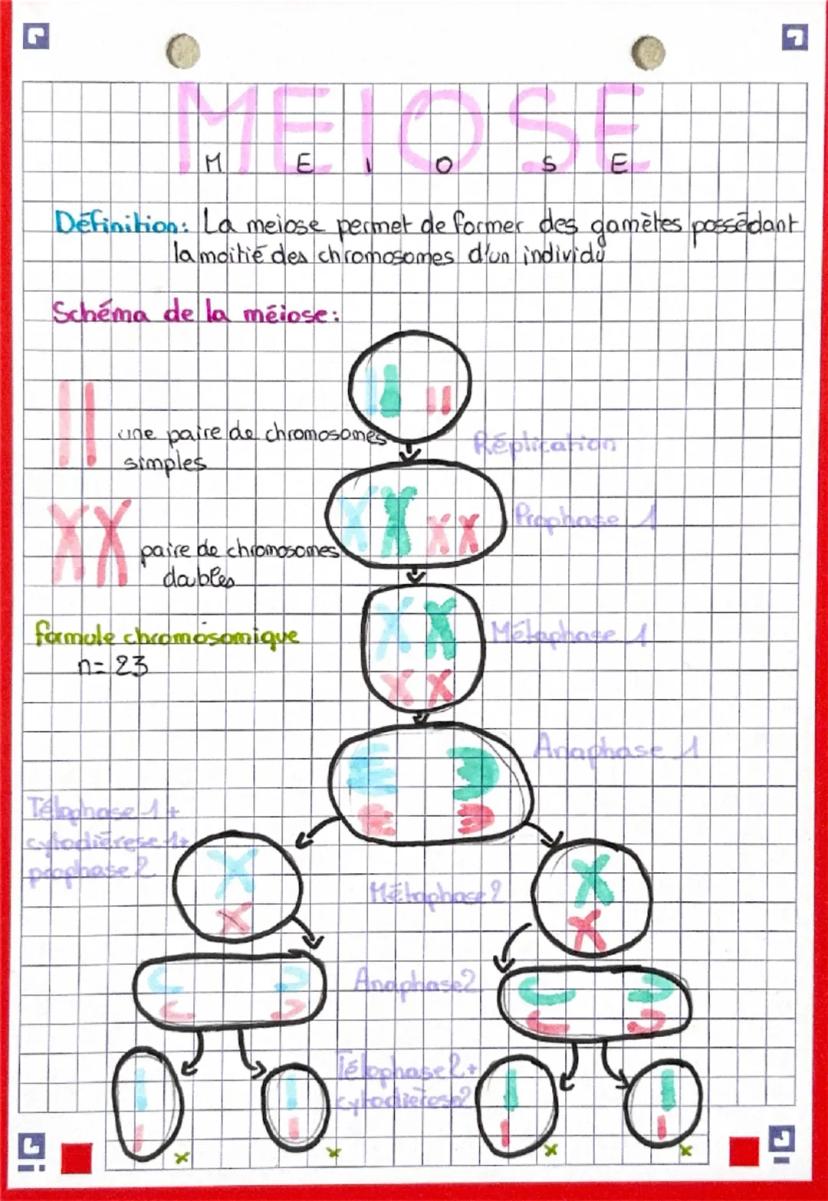 MEIOSE
M E I O S E
Définition: La meiose permet de former des gamètes possédant
la moitié des chromosomes d'un individu
Schéma de la méiose:
une paire de chromosomes
simples
Réplication
Prophase 1
paire de chromosomes
doubles
Métaphase 1
formule chromosomique
n= 23
Anaphase 1
Télophase 1 +
cytodiérèse 1+
prophase 2
Métaphase 2
Anaphase 2
Télophase 2 +
cytodiérèse 2